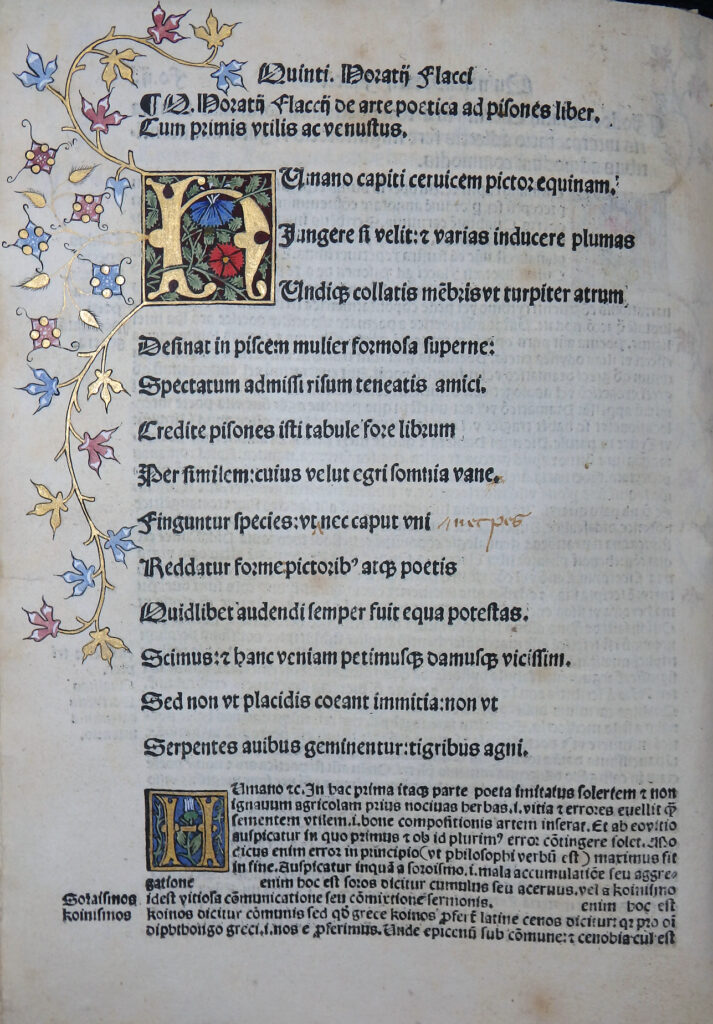 Quinti. Horatij Flacci
¶ Q. Horatij Flaccij de arte poetica ad pisones liber.
Cum primis vtilis ac venustus.
HUmano capiti ceruicem pictor equinam.
Jungere si velit: ⁊ varias inducere plumas
Undiqꝫ collatis mēbris vt turpiter atrum
Desinat in piscem mulier formosa superne:
Spectatum admissi risum teneatis amici.
Credite pisones isti tabule fore librum
Per similem: cuius velut egri somnia vane.
Finguntur species: vt nec caput vni nec pes
Reddatur forme. pictoribꝰ atqꝫ poetis
Quidlibet audendi semper fuit equa potestas.
Scimus: ⁊ hanc veniam petimusqꝫ damusqꝫ vicissim.
Sed non vt placidis coeant immitia: non vt
Serpentes auibus geminentur: tigribus agni.
HUmano ⁊c. In hac prima itaqꝫ parte poeta imitatus solertem ⁊ non
ignauum agricolam prius nociuas herbas .i. vitia ⁊ errores euellit
sementem vtilem .i. bone compositionis artem inserat. Et ab eo vitio
auspicatur in quo primus ⁊ ob id plurimꝰ error cōtingere solet.
enim error in principio (vt philosophi verbū est) maximus sit
in fine. Auspicatur inquā a soroismo .i. mala accumulatiōe seu aggre-
gatione enim hoc est soros dicitur cumulus seu aceruus. vel a koinismo
Soraismos
idest vitiosa cōmunicatione seu cōmixtione sermonis. enim hoc est
koinismos
koinos dicitur cōmunis sed qꝺ grece koinos ꝓfert latine cenos dicitur: qꝛ pro oi
diphthongo greci .i. nos e ꝓferimus. Unde epicenū sub cōmune: ⁊ cenobia cui est